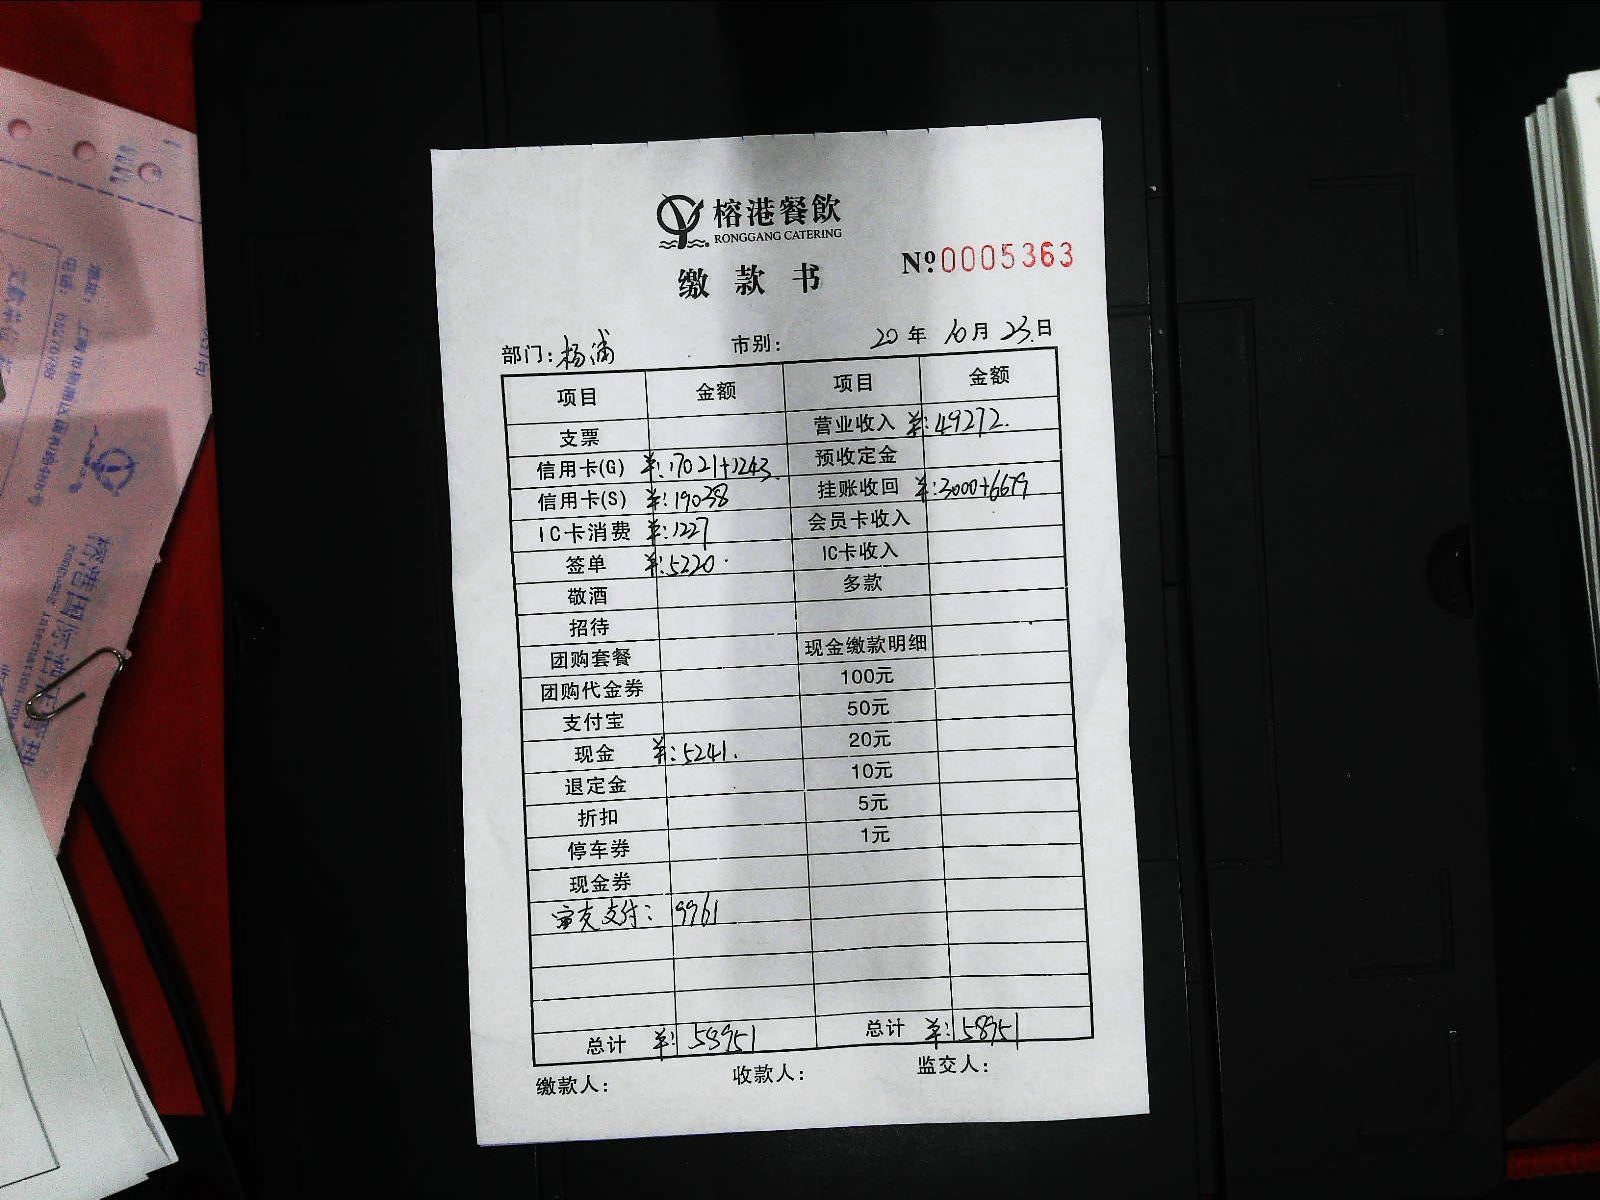 榕港餐飲
RONGGANG CATERING
缴款书
Nº0005363
部门：杨浦 市别： 20年10月23日
项目 金额 项目 金额
支票 营业收入 ¥:49272.
信用卡(G) ¥:17021+1243 预收定金
信用卡(S) ¥:19038 挂账收回 ¥:3000+6679
IC卡消费 ¥:1227 会员卡收入
签单 ¥:5220. IC卡收入
敬酒 多款
招待
团购套餐 现金缴款明细
团购代金券 100元
支付宝 50元
现金 ¥:5241. 20元
退定金 10元
折扣 5元
停车券 1元
现金券
支付：9961
总计 ¥:58951 总计 ¥:58951
缴款人： 收款人： 监交人：